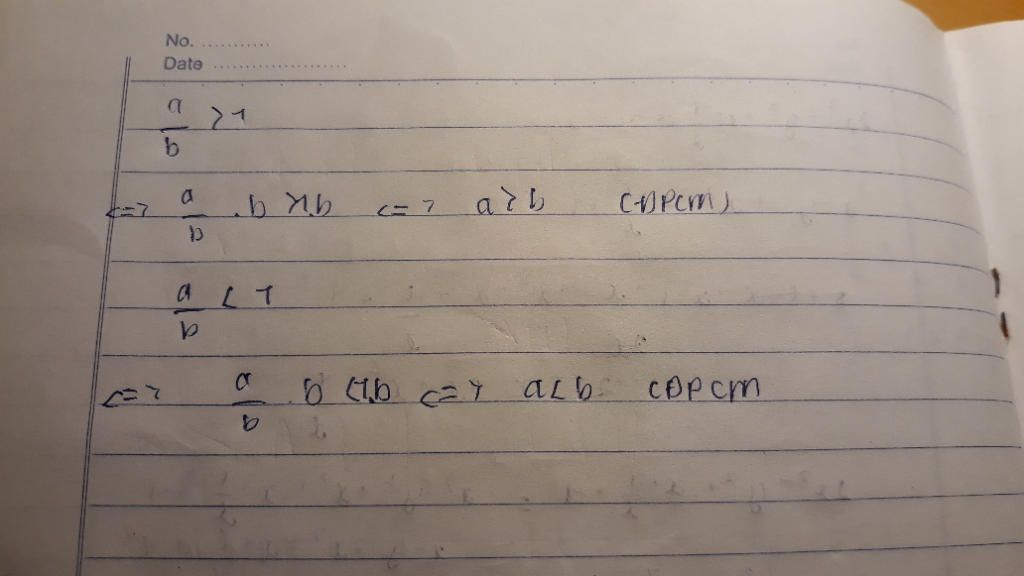 No. ...........
Date .....................
a/b > 1
<=> a/b . b > 1.b <=> a > b (ĐPCM)
a/b < 1
<=> a/b . b < 1.b <=> a < b (ĐPCM